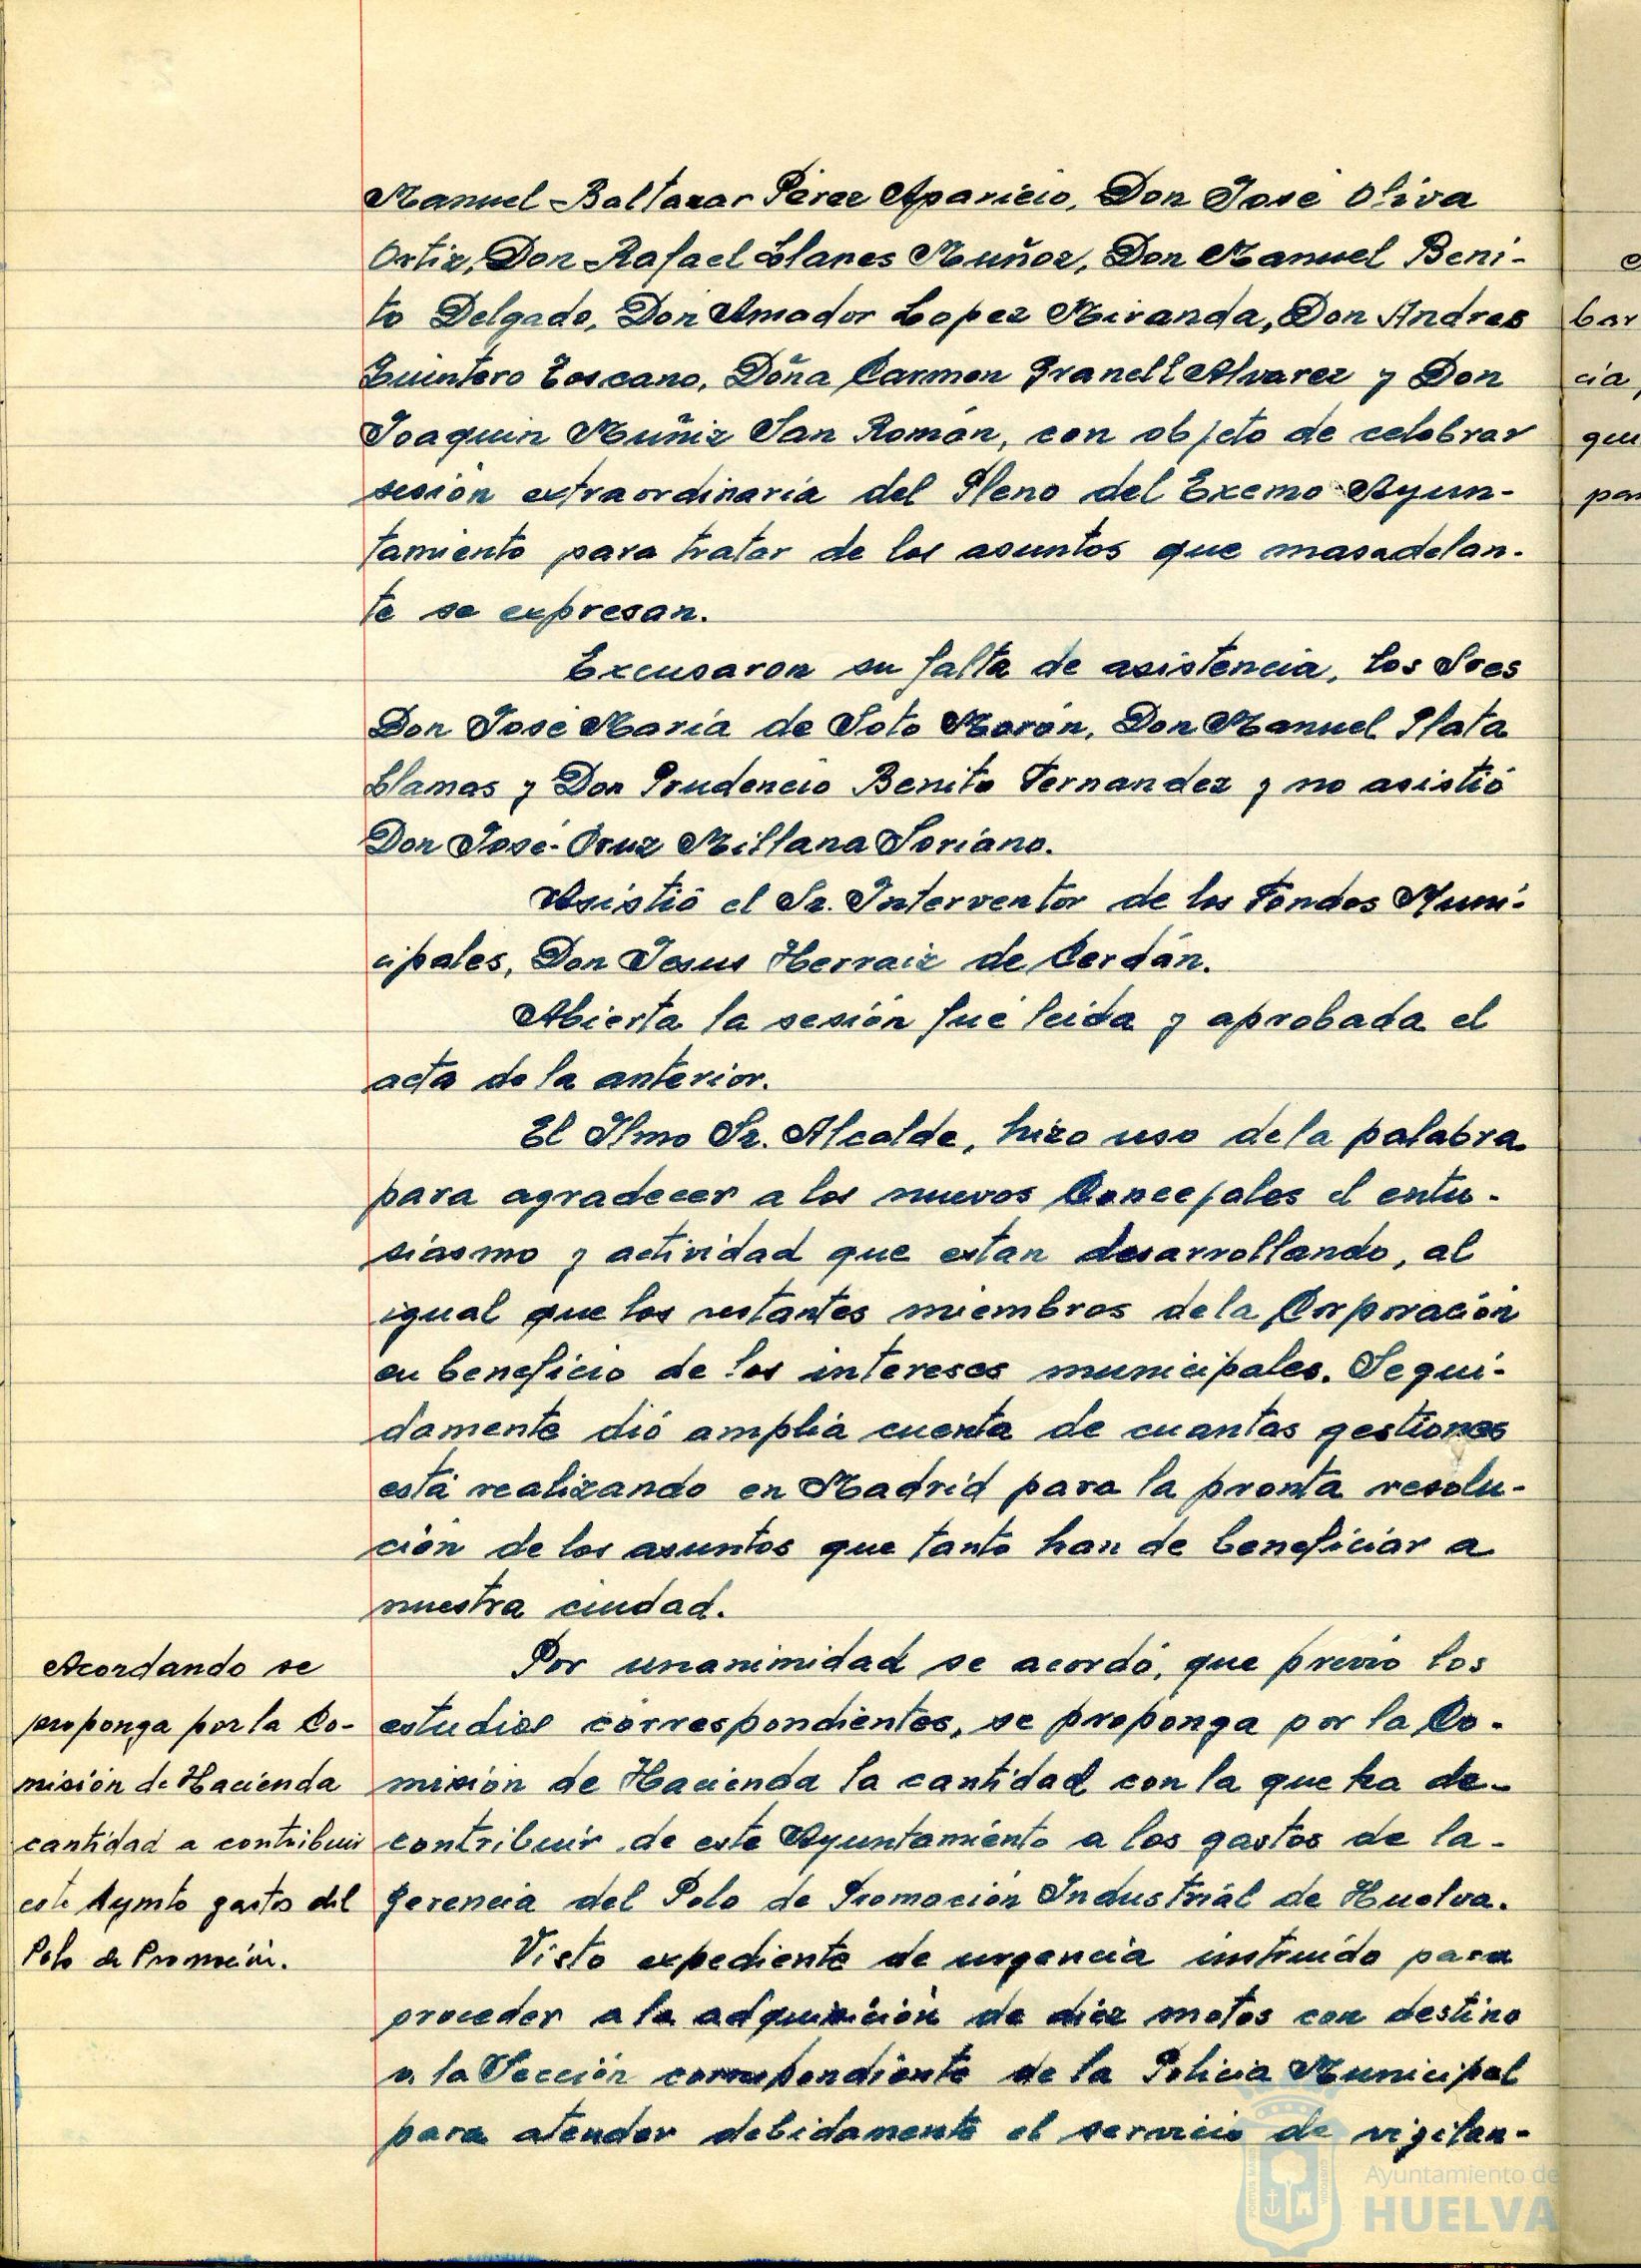 Manuel Baltazar Pérez Aparicio, Don José Oliva
Ortiz, Don Rafael Llanes Muñoz, Don Manuel Beni-
to Delgado, Don Amador Lopez Miranda, Don Andres
Quintero Toscano, Doña Carmen Granell Alvarez y Don
Joaquin Muñiz San Román, con objeto de celebrar
sesión extraordinaria del Pleno del Excmo Ayun-
tamiento para tratar de los asuntos que mas adelan-
te se expresan.
Excusaron su falta de asistencia, los Sres
Don José María de Soto Morón, Don Manuel Plata
Llamas y Don Prudencio Benito Fernandez y no asistió
Don José-Cruz Millana Soriano.
Asistió el Sr. Interventor de los Fondos Muni-
cipales, Don Jesus Herraiz de Cerdán.
Abierta la sesión fué leida y aprobada el
acta de la anterior.
El Ilmo Sr. Alcalde, hizo uso de la palabra
para agradecer a los nuevos Concejales el entu-
siasmo y actividad que estan desarrollando, al
igual que los restantes miembros de la Corporación
en beneficio de los intereses municipales. Segui-
damente dió amplia cuenta de cuantas gestiones
está realizando en Madrid para la pronta resolu-
ción de los asuntos que tanto han de beneficiar a
nuestra ciudad.
Acordando se
proponga por la Co-
misión de Hacienda
cantidad a contribuir
este Aymto gastos del
Polo de Promoción.
Por unanimidad se acordó, que previo los
estudios correspondientes, se proponga por la Co-
misión de Hacienda la cantidad con la que ha de-
contribuir de este Ayuntamiento a los gastos de la-
gerencia del Polo de Promoción Industrial de Huelva.
Visto expediente de urgencia instruido para
proceder a la adquisición de diez motos con destino
a la Sección correspondiente de la Policia Municipal
para atender debidamente el servicio de vigilan-
bar
cia,
que
par
Ayuntamiento de
HUELVA